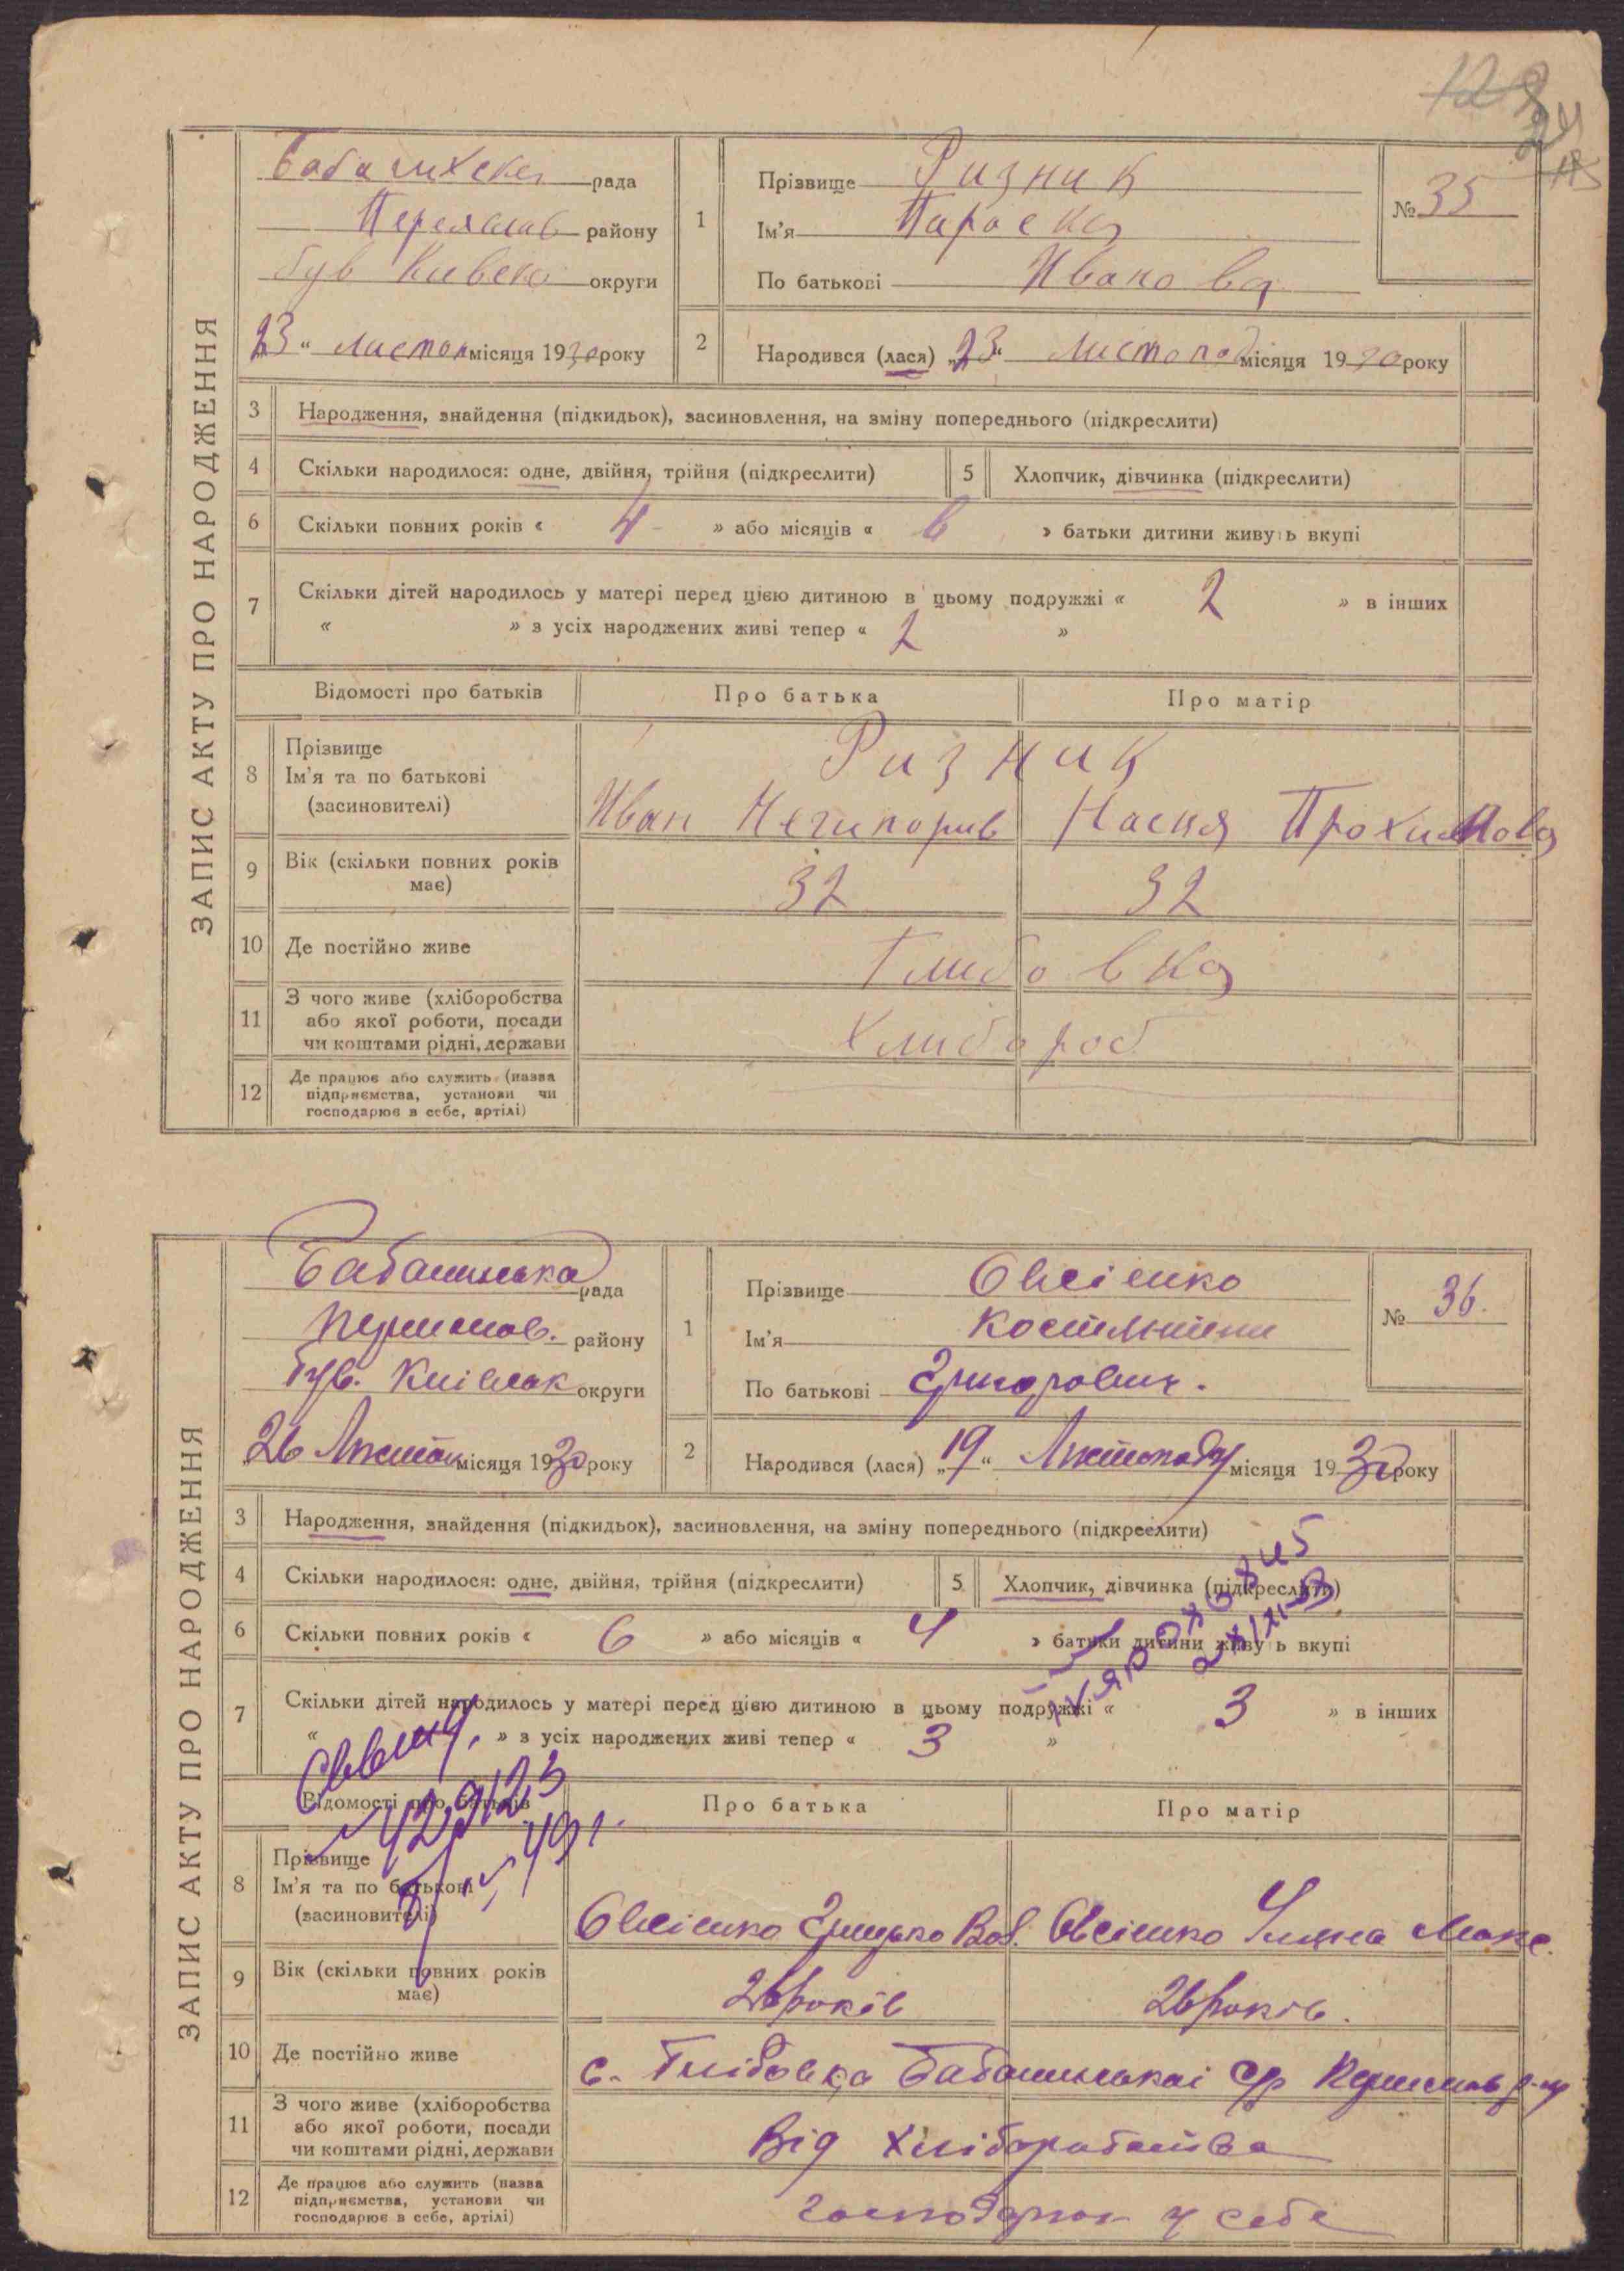 ЗАПИС АКТУ ПРО НАРОДЖЕННЯ
рада
Переяслав району
був Киевско округи
23 " листоп місяця 1930 року
1
Прізвище Ризник
Ім'я Параска
По батькові Иванова
№ 35
2
Народився (лася) „23“ листопад місяця 1930 року
3 Народження, знайдення (підкидьок), засиновлення, на зміну попереднього (підкреслити)
4 Скільки народилося: одне, двійня, трійня (підкреслити) 5 Хлопчик, дівчинка (підкреслити)
6 Скільки повних років « 4 » або місяців « 6 » батьки дитини живуть вкупі
7 Скільки дітей народилось у матері перед цією дитиною в цьому подружжі « 2 » в інших
« » з усіх народжених живі тепер « 2 »
Відомості про батьків Про батька Про матір
8 Прізвище
Ім'я та по батькові
(засиновителі)
Ризник
Иван Ничипорив Наския Прохимова
9 Вік (скільки повних років
має)
32 32
10 Де постійно живе Глибовка
11 З чого живе (хліборобства
або якої роботи, посади
чи коштами рідні, держави
Хлибороб
12 Де працює або служить (назва
підприємства, установи чи
господарює в себе, артілі)
ЗАПИС АКТУ ПРО НАРОДЖЕННЯ
Бабачинська рада
району
був. округи
„26 Листоп місяця 1930 року
1
Прізвище Овсієнко
Ім'я
По батькові Григорович.
№ 36.
2
Народився (лася) „19“ Листопаду місяця 1930 року
3 Народження, знайдення (підкидьок), засиновлення, на зміну попереднього (підкреслити)
4 Скільки народилося: одне, двійня, трійня (підкреслити) 5 Хлопчик, дівчинка (підкреслити)
6 Скільки повних років « 6 » або місяців « 4 » батьки дитини живуть вкупі
7 Скільки дітей народилось у матері перед цією дитиною в цьому подружжі « 3 » в інших
« » з усіх народжених живі тепер « 3 »
Відомості про батьків Про батька Про матір
8 Прізвище
Ім'я та по батькові
(засиновителі)
Овсієнко Грицько Овсієнко Уляна Макс.
9 Вік (скільки повних років
має)
26 років 26 років.
10 Де постійно живе с. Глібовка Бабачинськоі с/р
11 З чого живе (хліборобства
або якої роботи, посади
чи коштами рідні, держави
Від хліборобства
12 Де працює або служить (назва
підприємства, установи чи
господарює в себе, артілі)
у себе